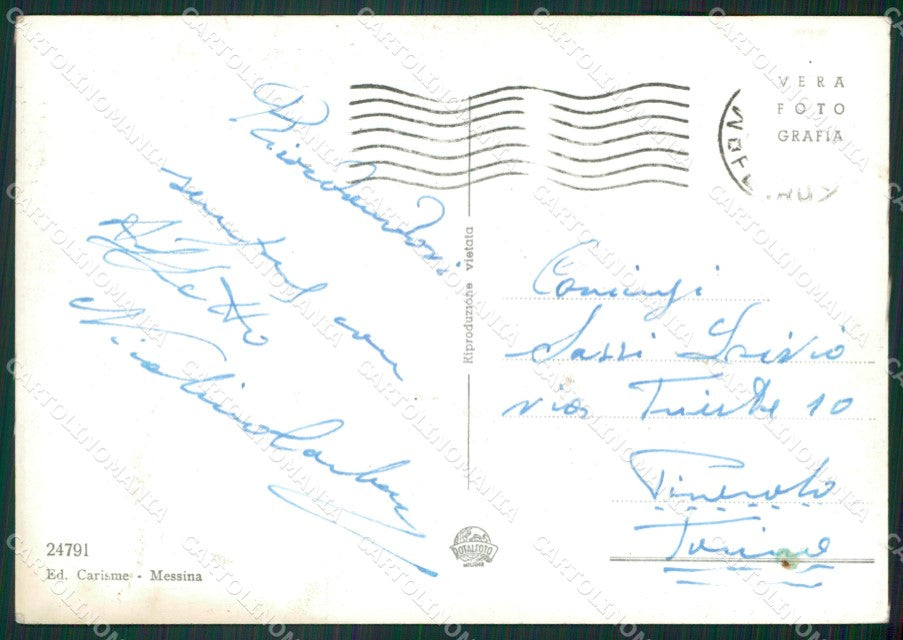 VERA
FOTO
GRAFIA
Ricordandovi
sempre con
affetto
Riproduzione vietata
Coniugi
Sassi Livio
via Trieste 10
Pinerolo
Torino
24791
Ed. Carisme - Messina
ROTALFOTO
MILANO
CARTOLINOMANIA